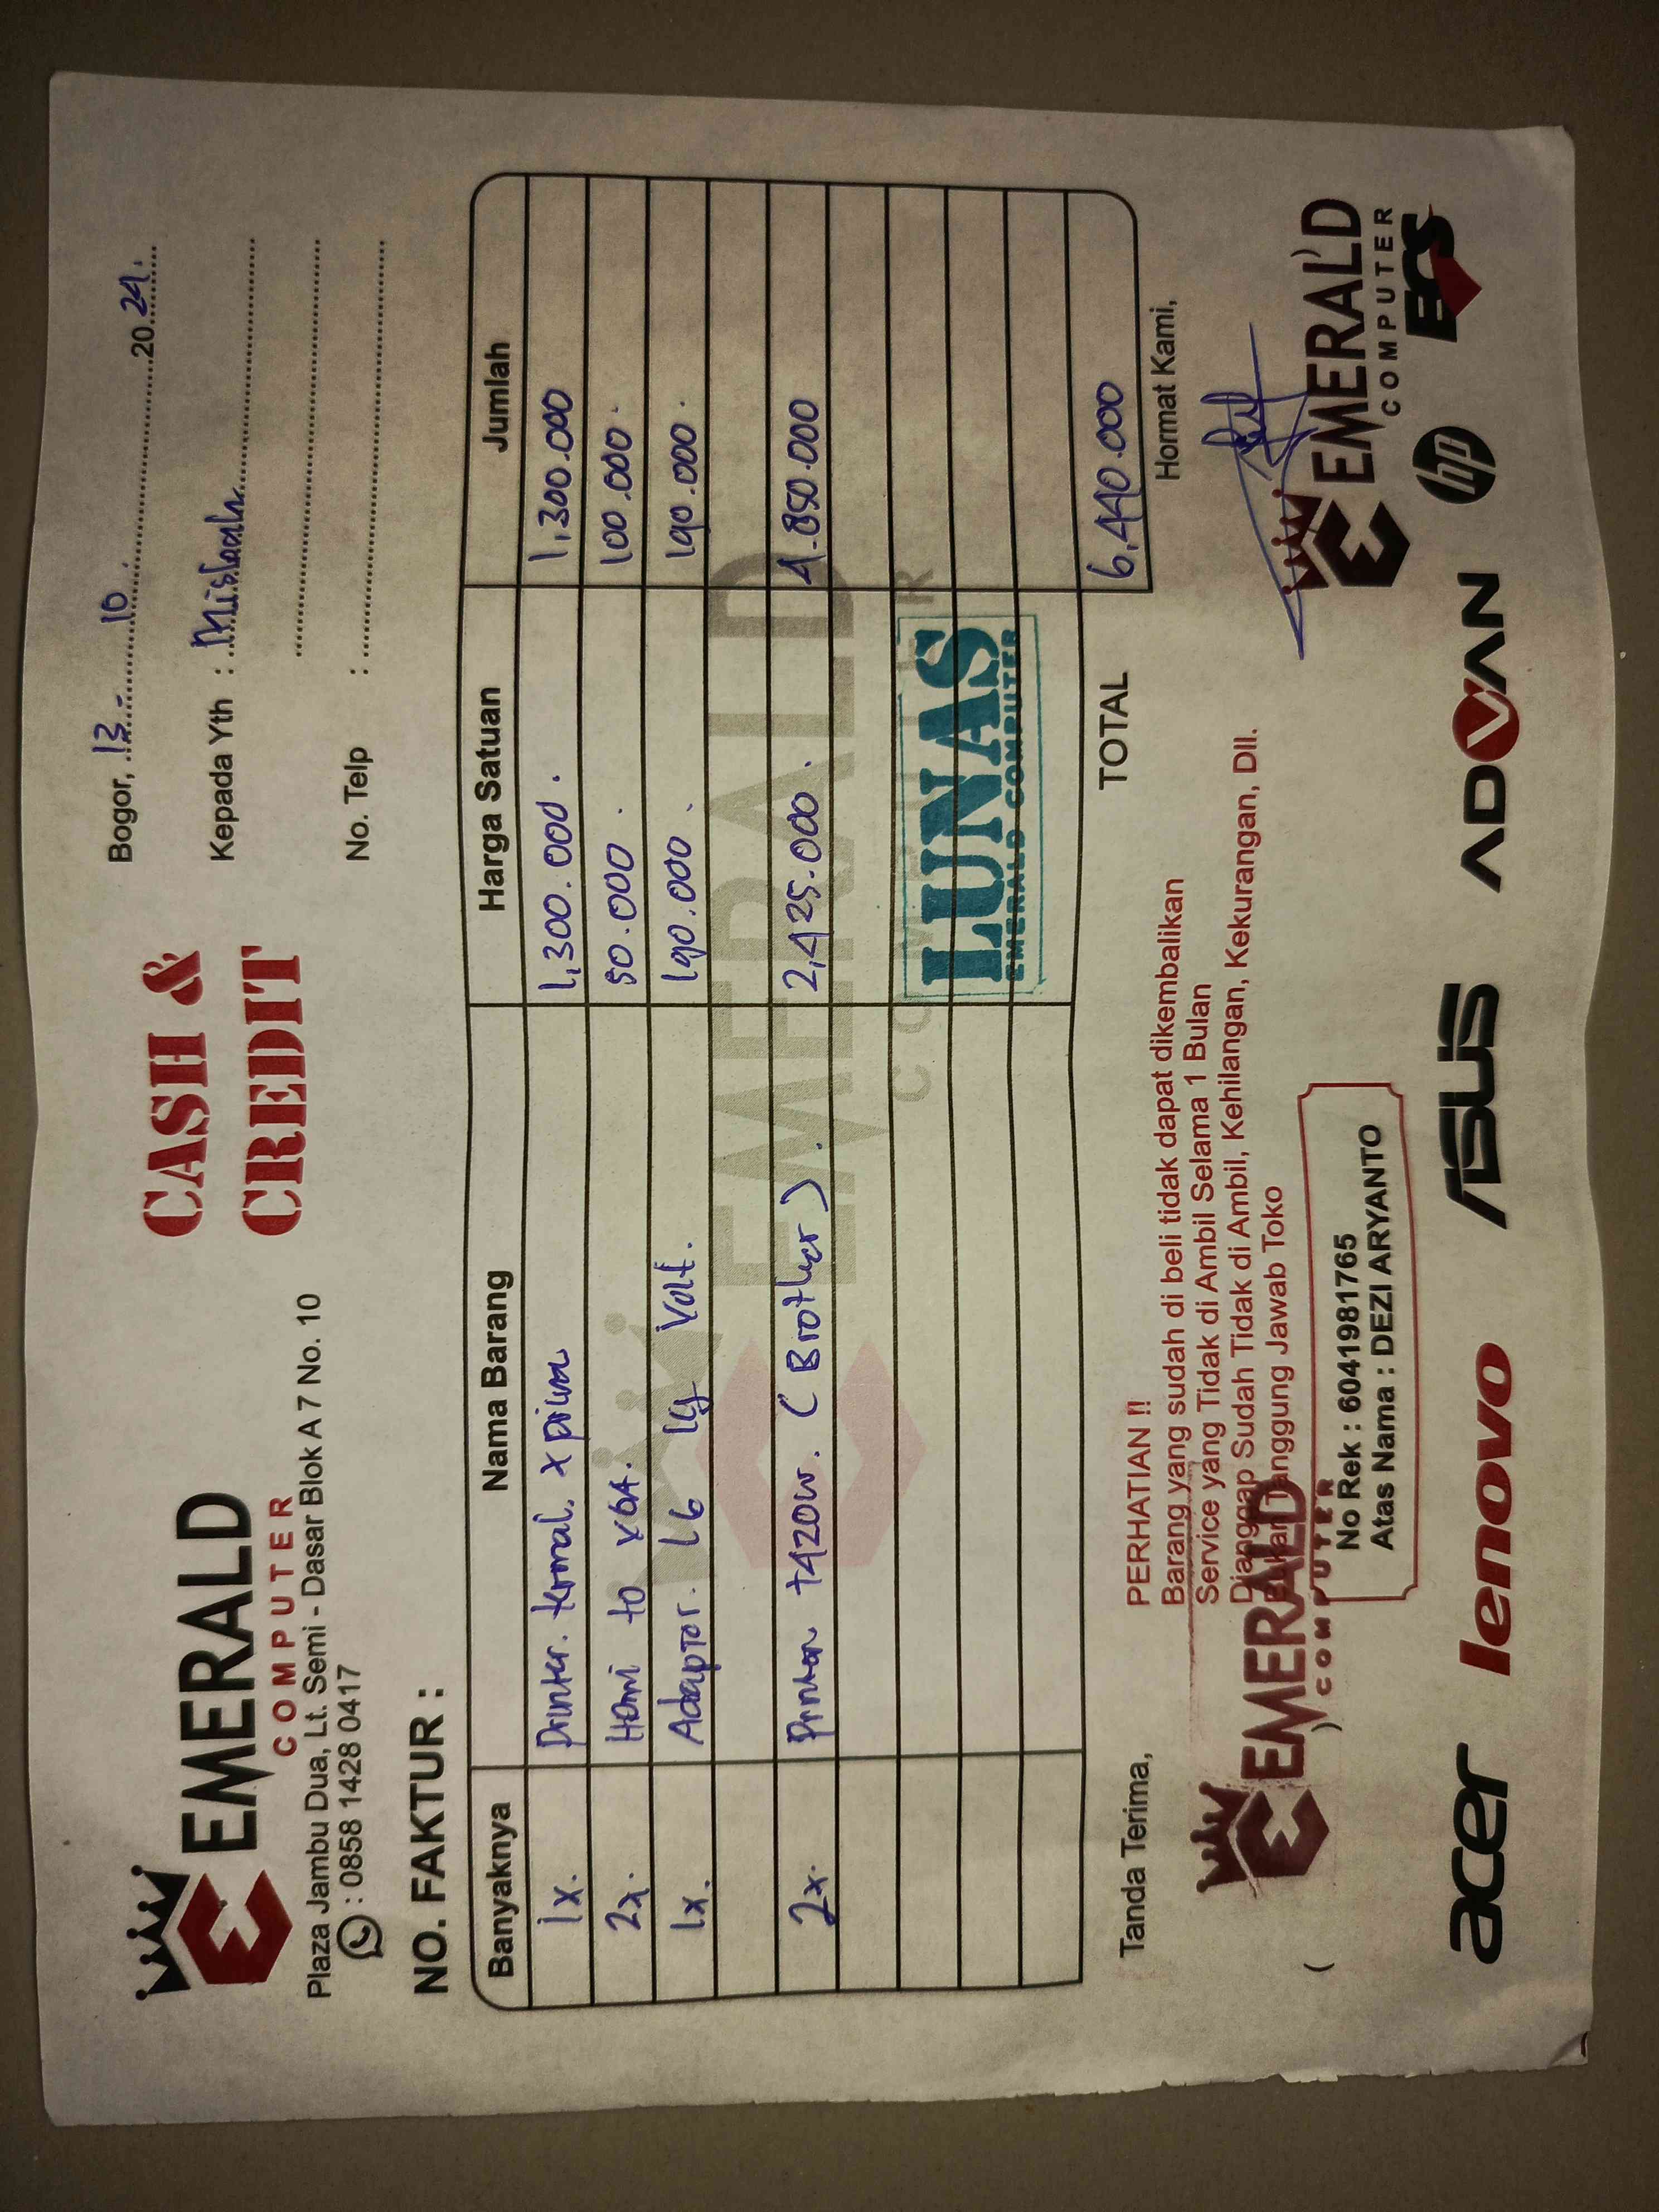 EMERALD
COMPUTER
Plaza Jambu Dua, Lt. Semi - Dasar Blok A 7 No. 10
: 0858 1428 0417
CASH &
CREDIT
Bogor, 13 - 10 2024.
Kepada Yth : Misbah
No. Telp :
NO. FAKTUR :
Banyaknya Nama Barang Harga Satuan Jumlah
1x. Printer. termal. 1,300.000. 1,300.000
2x. Hdmi to VGA. 50.000. 100.000.
1x. Adaptor. LG 19 Volt. 190.000. 190.000.
2x. Printer t420w. (Brother). 2,425.000. 4.850.000
EMERALD
COMPUTER
LUNAS
EMERALD COMPUTER
TOTAL 6,440.000
Tanda Terima,
PERHATIAN !!
Barang yang sudah di beli tidak dapat dikembalikan
Service yang Tidak di Ambil Selama 1 Bulan
Dianggap Sudah Tidak di Ambil, Kehilangan, Kekurangan, Dll.
Bukan Tanggung Jawab Toko
Hormat Kami,
EMERALD
COMPUTER
( )
No Rek : 6041981765
Atas Nama : DEZI ARYANTO
EMERALD
COMPUTER
acer lenovo ASUS ADVAN hp ECS